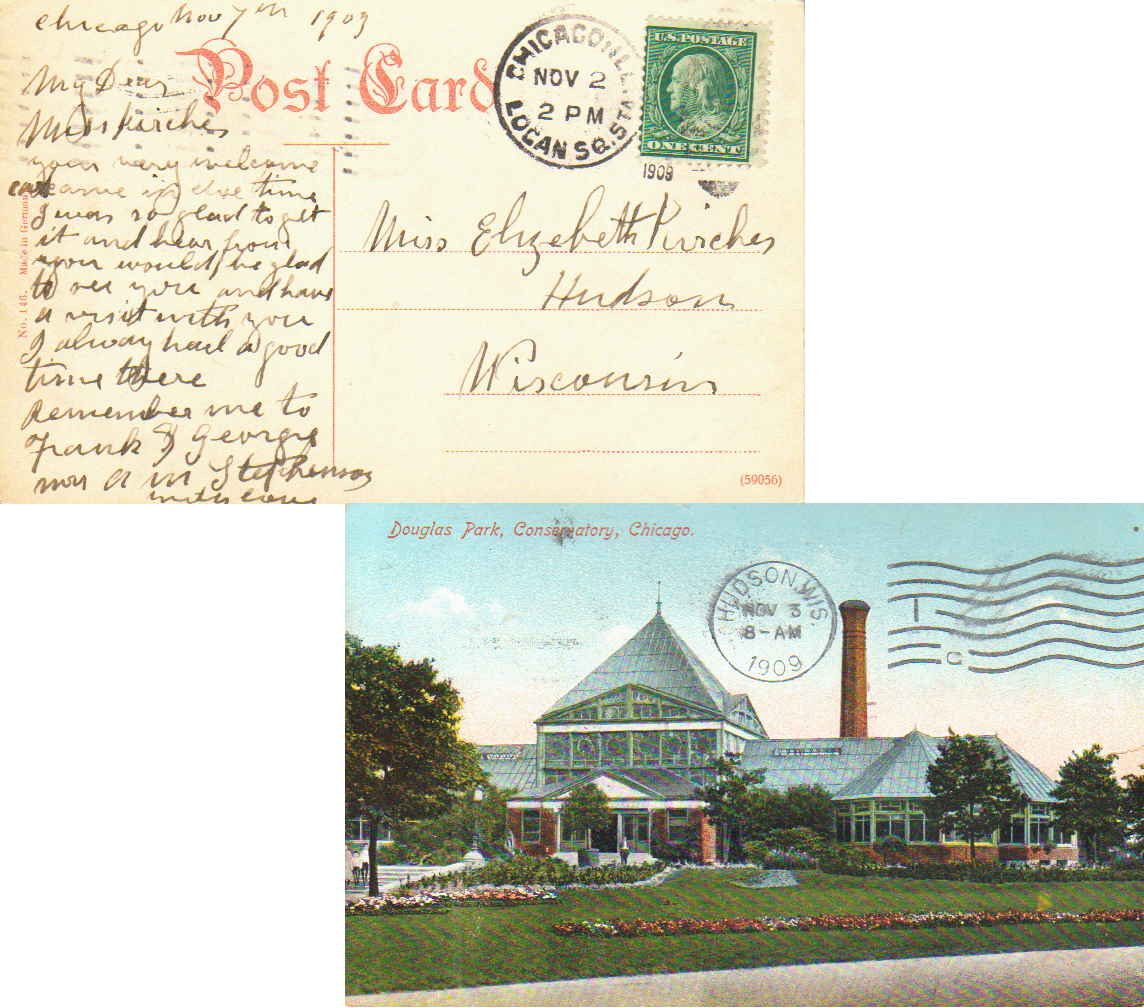 Chicago Nov 7th 1909
Post Card
My Dear
Miss Kirches
your very welcome
card came in due time
I was so glad to get
it and hear from
you would be glad
to see you and have
a visit with you
I alway had a good
time there
Remember me to
Frank & Georgie
in Stephenson
with love
No. 146. Made in Germany
CHICAGO, ILL.
NOV 2
2 PM
LOGAN SQ. STA.
1909
U.S. POSTAGE
ONE CENT
Miss Elizebeth Kirches
Hudson
Wisconsin
(59056)
Douglas Park, Conservatory, Chicago.
HUDSON, WIS.
NOV 3
8-AM
1909
1
C